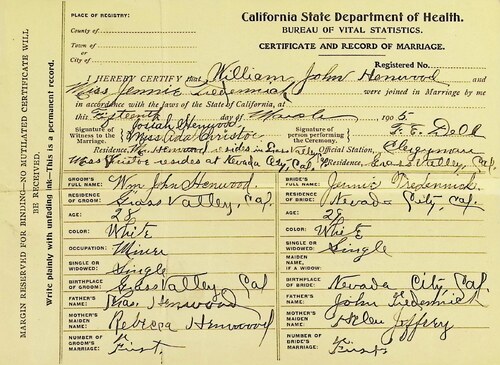 California State Department of Health.
BUREAU OF VITAL STATISTICS.
CERTIFICATE AND RECORD OF MARRIAGE.
PLACE OF REGISTRY:
County of
Town of
or
City of
Registered No.
I HEREBY CERTIFY that William John Henwood and
Miss Jennie Tredennick were joined in Marriage by me
in accordance with the laws of the State of California, at
this Fifteenth day of March 1905
Signature of Witness to the Marriage Josiah Henwood
Miss Ada Christoe
Signature of person performing the Ceremony.
Residence, Wm Henwood resides in Grass Valley, Cal. Official Station, Clergyman
Miss Christoe resides at Nevada City, Cal. Residence, Grass Valley, Cal.
GROOM'S FULL NAME: Wm John Henwood. BRIDE'S FULL NAME: Jennie Tredennick.
RESIDENCE OF GROOM: Grass Valley, Cal. RESIDENCE OF BRIDE: Nevada City, Cal.
AGE: 28 AGE: 28
COLOR: White COLOR: White
OCCUPATION: Miner SINGLE OR WIDOWED: Single
SINGLE OR WIDOWED: Single MAIDEN NAME, IF A WIDOW:
BIRTHPLACE OF GROOM: Grass Valley, Cal BIRTHPLACE OF BRIDE: Nevada City, Cal.
FATHER'S NAME: Henwood FATHER'S NAME: John Tredennick
MOTHER'S MAIDEN NAME: Rebecca Henwood MOTHER'S MAIDEN NAME: Helen Jeffery
NUMBER OF GROOM'S MARRIAGE: First. NUMBER OF BRIDE'S MARRIAGE: First
MARGIN RESERVED FOR BINDING—NO MUTILATED CERTIFICATE WILL
BE RECEIVED.
Write plainly with unfading ink—This is a permanent record.